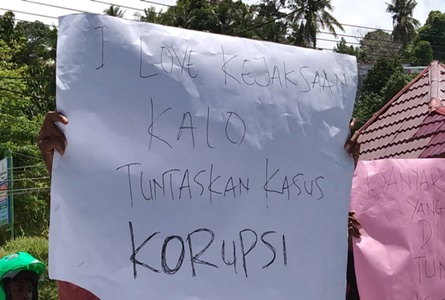 I LOVE KEJAKSAAN
KALO
TUNTASKAN KASUS
KORUPSI
BANYAK
YANG
D
TUN